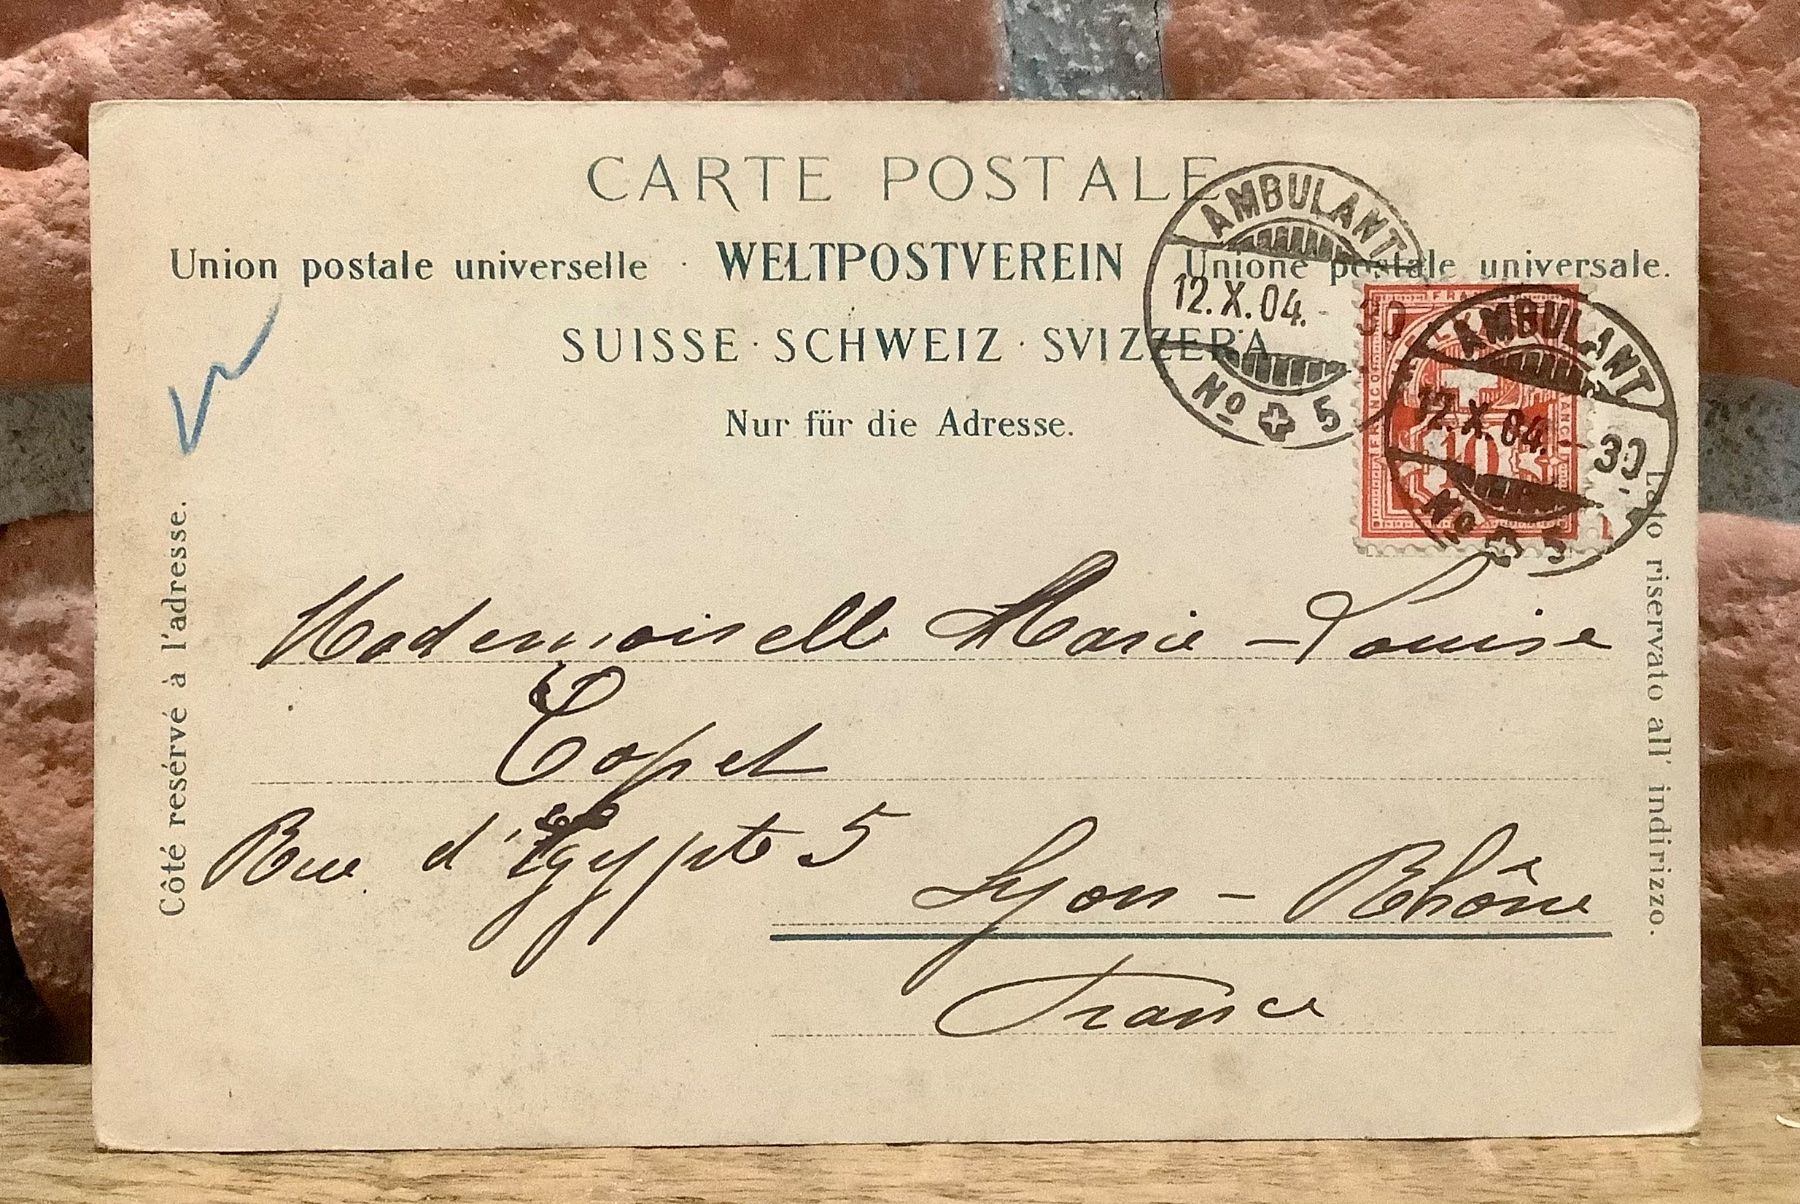 CARTE POSTALE
Union postale universelle · WELTPOSTVEREIN · Unione postale universale.
SUISSE · SCHWEIZ · SVIZZERA
Nur für die Adresse.
AMBULANT
12.X.04.- 30
No 5
FRANCO
10
AMBULANT
12.X.04.- 30
No 5
Côté resérvé à l'adresse.
Lato riservato all' indirizzo.
Mademoiselle Marie-Louise
Copet
Rue d'Egypte 5
Lyon - Rhône
France